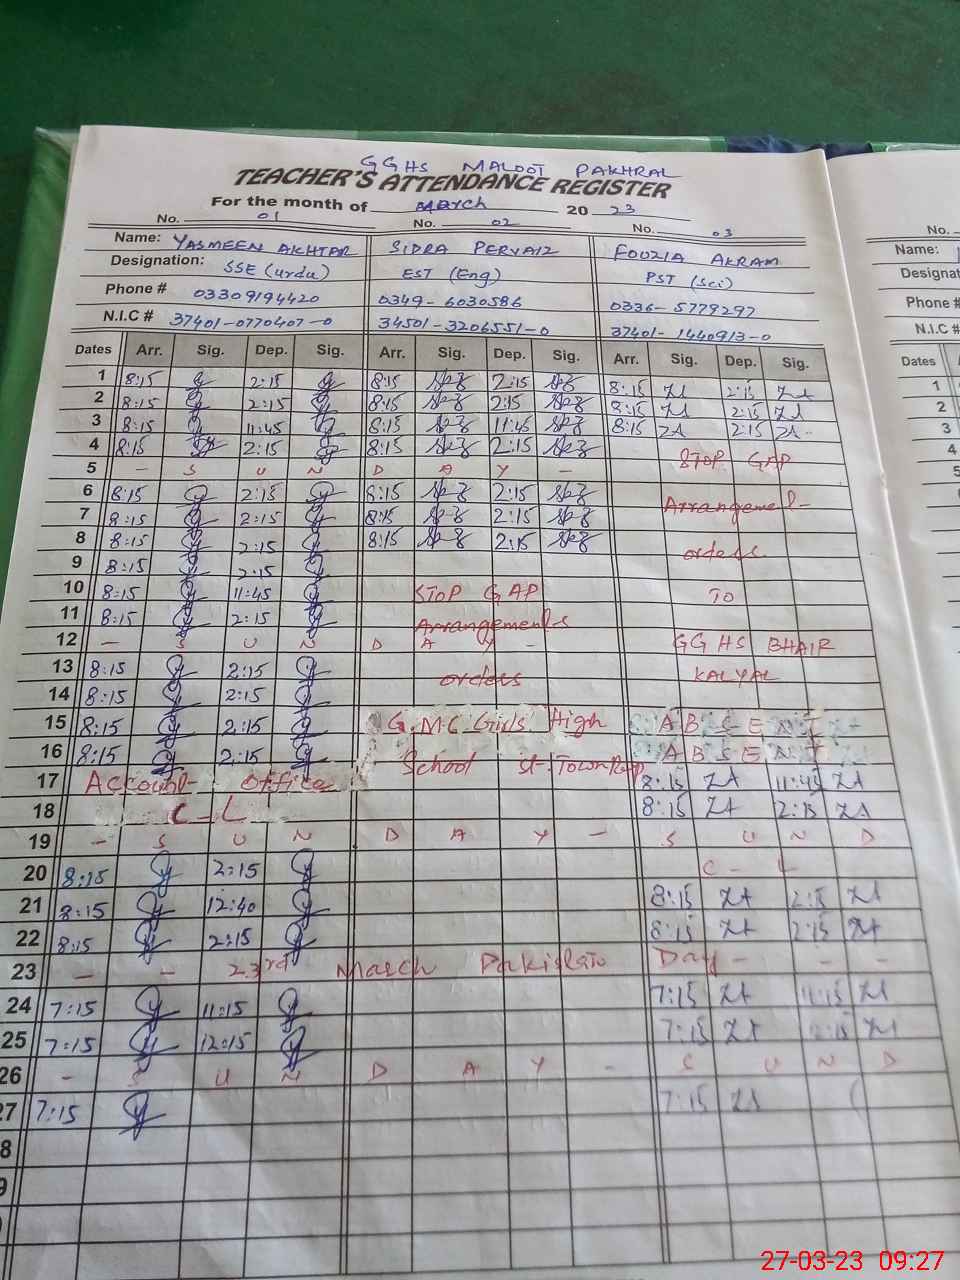 GGHS MALOOT PAKHRAL
TEACHER'S ATTENDANCE REGISTER
For the month of March 20 23
No. 01 No. 02 No. 03 No.
Name: YASMEEN AKHTAR SIDRA PERVAIZ FOUZIA AKRAM Name:
Designation: SSE (urdu) EST (Eng) PST (Sci) Designat
Phone # 03309194420 0349-6030586 0336-5779297 Phone #
N.I.C # 37401-0770407-0 34501-3206551-0 37401-1440913-0 N.I.C #
Dates Arr. Sig. Dep. Sig. Arr. Sig. Dep. Sig. Arr. Sig. Dep. Sig. Dates
1 8:15 2:15 8:15 2:15 8:15 ZA 2:15 ZA 1
2 8:15 2:15 8:15 2:15 8:15 ZA 2:15 ZA 2
3 8:15 11:45 8:15 11:45 8:15 ZA 2:15 ZA 3
4 8:15 2:15 8:15 2:15 STOP GAP 4
5 - S U N D A Y - 5
6 8:15 2:15 8:15 2:15 Arrangement 6
7 8:15 2:15 8:15 2:15 7
8 8:15 2:15 8:15 2:15 orders 8
9 8:15 2:15 9
10 8:15 11:45 STOP GAP TO 10
11 8:15 2:15 Arrangements 11
12 - S U N D A Y - GGHS BHAIR 12
13 8:15 2:15 orders KALYAL 13
14 8:15 2:15 14
15 8:15 2:15 G.M.C Girls High A B S E N T 15
16 8:15 2:15 School st Town A B S E N T 16
17 Account office 8:15 ZA 11:45 ZA 17
18 C-L 8:15 ZA 2:15 ZA 18
19 - S U N D A Y - S U N D
20 8:15 2:15 C - L
21 8:15 12:40 8:15 ZA 2:15 ZA
22 8:15 2:15 8:15 ZA 2:15 ZA
23 - - 23rd March Pakistan Day - - -
24 7:15 11:15 7:15 ZA 11:15 ZA
25 7:15 12:15 7:15 ZA 12:15 ZA
26 - S U N D A Y - S U N D
27 7:15 7:15 ZA
8
9
27-03-23 09:27